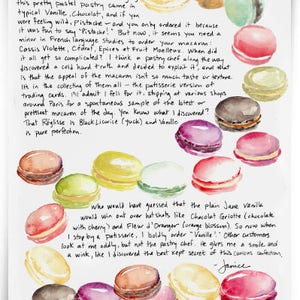 this pretty pastel pastry came in
typical Vanilla, Chocolat, and if you
were feeling wild, Pistache - and you only ordered it because
it was fun to say "Pistache!" But now, it seems you need a
minor in French language studies to order your macaron:
Cassis Violette, Cédrat, Épices et Fruit Moelleux. When did
it all get so complicated? I think a pastry chef along the way
discovered a cold hard truth and decided to exploit it, and that
is that the appeal of the macaron isn't so much taste or texture.
It's in the collecting of them all - the patisserie version of
trading cards. I'll admit I fell for it, stopping at various shops
around Paris for a spontaneous sample of the latest or
prettiest macaron of the day. You know what I discovered?
That Réglisse is Black Licorice (yuck) and Vanille
is pure perfection.
who would have guessed that the plain Jane Vanilla
would win out over hotshots like Chocolat Griotte (chocolate
with cherry) and Fleur d'Oranger (orange blossom). So now when
I stop by a patisserie, I boldly order "Vanille". Other customers
look at me oddly, but not the pastry chef. He gives me a smile and
a wink, like I discovered the best kept secret of this curious collection.
Janice